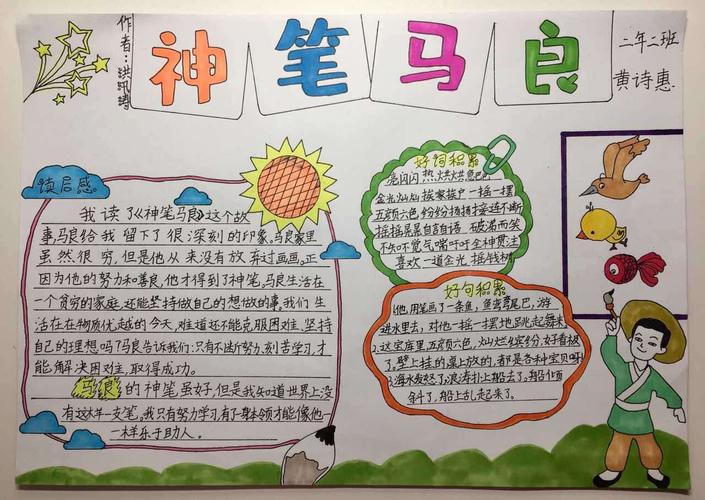 作者：洪汛涛
神笔马良
二年二班
黄诗惠
读后感
我读了《神笔马良》这个故
事,马良给我留下了很深刻的印象。马良家里
虽然很穷,但是他从来没有放弃过画画。正
因为他的努力和善良,他才得到了神笔。马良生活在
一个贫穷的家庭,还能坚持做自己的想做的事。我们生
活在在物质优越的今天,难道还不能克服困难,坚持
自己的理想吗?马良告诉我们:只有不断努力,刻苦学习,才
能解决困难,取得成功。
马良的神笔虽好,但是我知道世界上没
有这样一支笔。我只有努力学习,有了一身本领才能像他一
一样乐于助人。
好词积累
亮闪闪 热烘烘 鱼尾巴
金光灿灿 挨家挨户 一摇一摆
五颜六色 纷纷扬扬 接连不断
摇摇晃晃 自言自语 破涕而笑
不做声 气喘吁吁 全神贯注
喜欢 一道金光 摇钱树
好句积累
1.他用笔画了一条鱼,鱼弯弯尾巴,游
进水里去,对他一摇一摆地跳起舞来。
2.这宝库里五颜六色,灿烂缤纷,好看极
了。壁上挂的桌上放的,都是各种宝贝呀!
3.海水发怒了,浪涛扑上船去了。船倾
斜了,船上乱起来了。